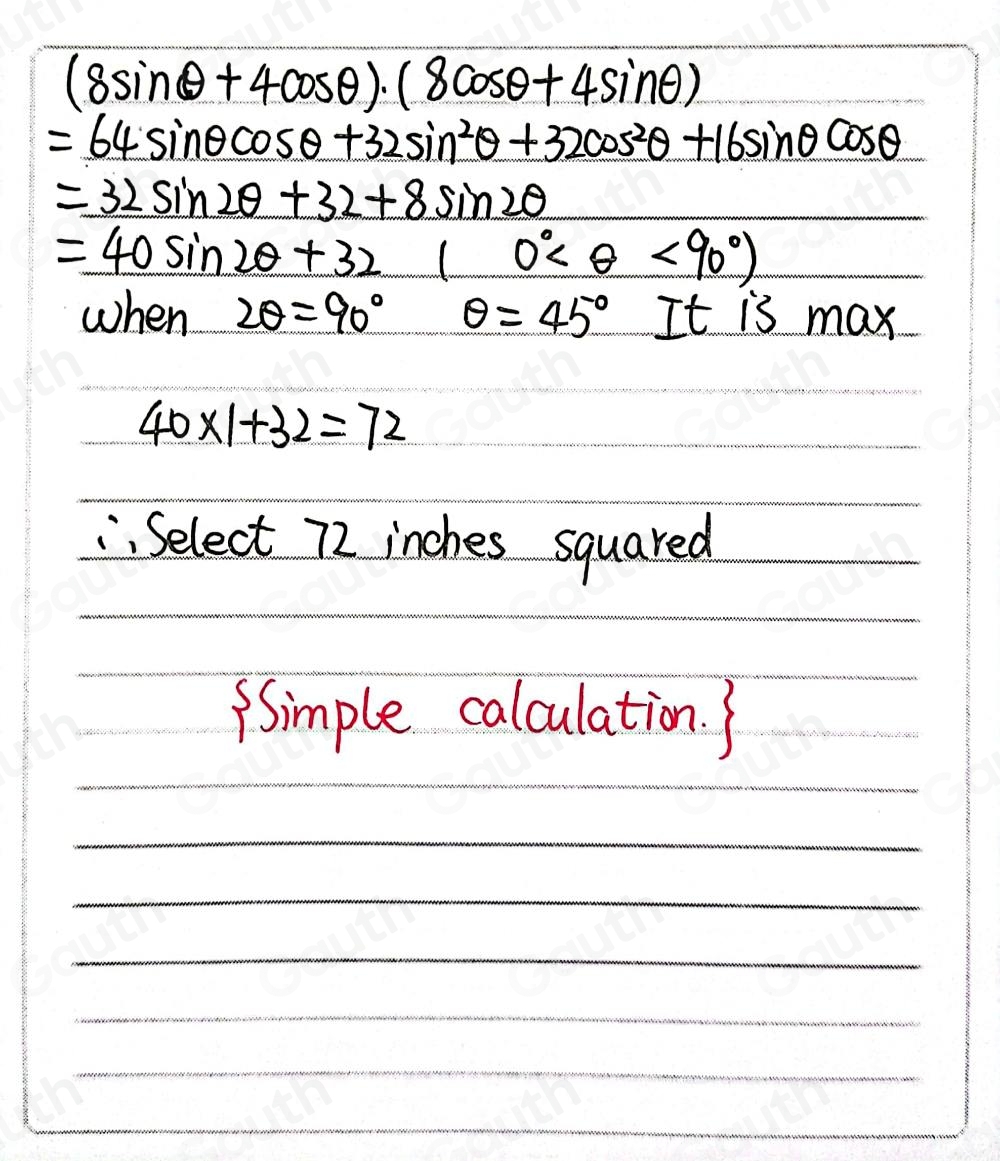 (8sinθ+4cosθ)·(8cosθ+4sinθ)
=64sinθcosθ+32sin²θ+32cos²θ+16sinθcosθ
=32sin2θ+32+8sin2θ
=40sin2θ+32 ( 0°<θ<90°)
when 2θ=90° θ=45° It is max
40×1+32=72
∴ Select 72 inches squared
{Simple calculation.}